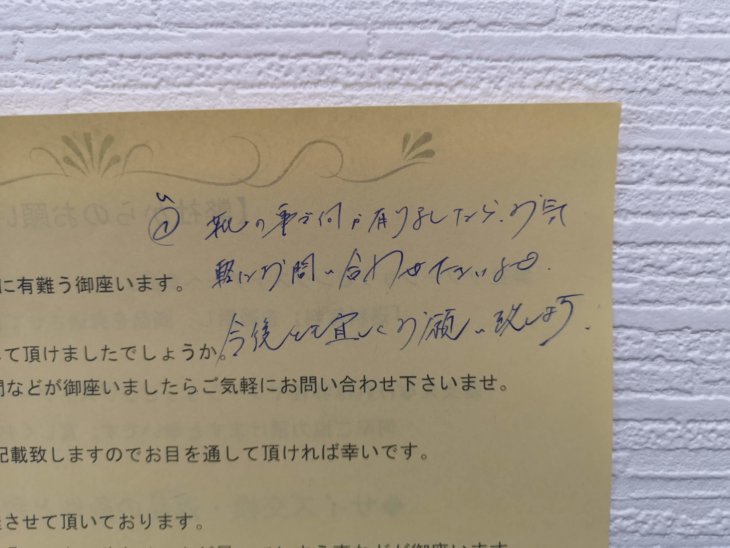 の事で何か有りましたら、お気
軽にお問い合わせ下さいませ。
に有難う御座います。
今後とも宜しくお願い致します。
して頂けましたでしょうか。
問などが御座いましたらご気軽にお問い合わせ下さいませ。
記載致しますのでお目を通して頂ければ幸いです。
させて頂いております。